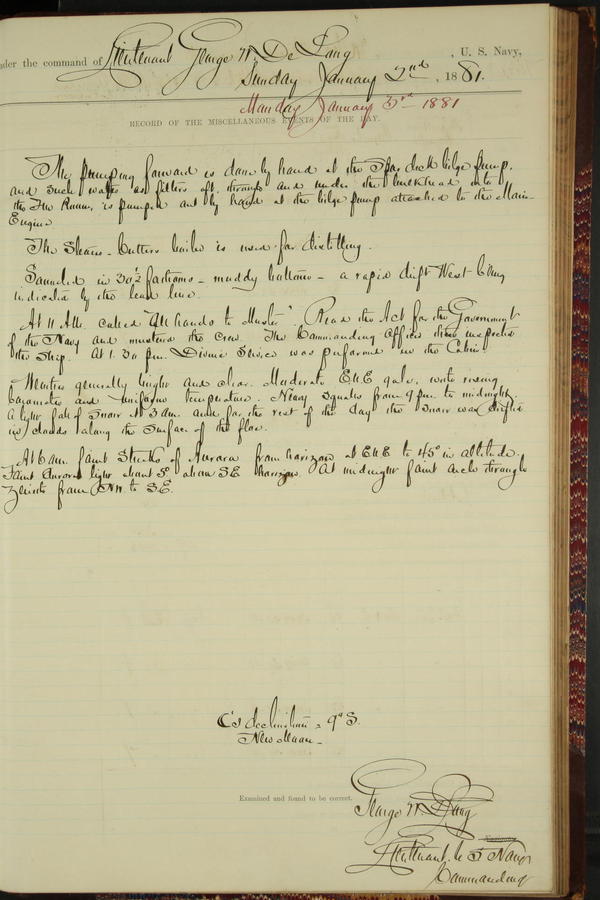 under the command of Lieutenant George W. De Long, U. S. Navy,
Sunday January 2nd, 1881.
Monday January 3rd 1881
RECORD OF THE MISCELLANEOUS EVENTS OF THE DAY.
The pumping forward is done by hand at the Spar deck bilge pump,
and such water as filters aft through and under the bulkhead into
the Fire Room, is pumped out by hand at the bilge pump attached to the Main
Engine
The Steam-Cutters boiler is used for distilling.
Sounded in 30½ fathoms - muddy bottom - a rapid drift West being
indicated by the lead line.
At 11 A.M. called "All hands to Muster". Read the Act for the Government
of the Navy and mustered the Crew. The Commanding Officer then inspected
the Ship. At 1.30 p.m. Divine Service was performed in the Cabin.
Weather generally bright and clear. Moderate ENE gale, with rising
barometer and uniform temperature. Heavy squalls from 9 p.m. to midnight.
A light fall of snow at 3 am. and for the rest of the day the snow was drifted
in clouds along the surface of the floe.
At 6 am. faint streaks of Aurora from horizon at ENE to 45° in altitude.
Faint Auroral light about 5° above SE horizon. At midnight faint arch through
Zenith from NW to SE.
declination 9° S.
New Moon.
Examined and found to be correct.
George W. De Long
Lieutenant U S Navy
Commanding